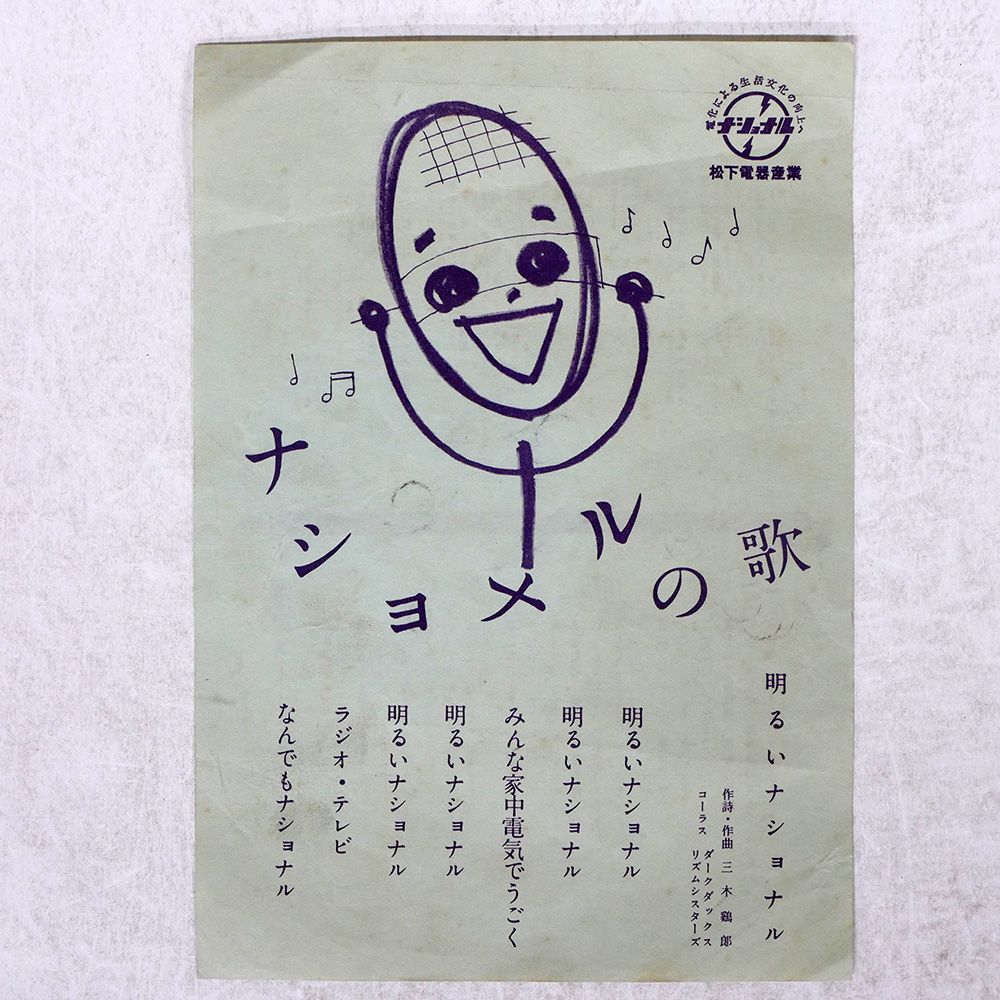 電化による生活文化の向上へ
ナショナル
松下電器産業
ナショメルの歌
明るいナショナル
作詩・作曲 三木鶏郎
コーラス ダークダックス
リズムシスターズ
明るいナショナル
明るいナショナル
みんな家中電気でうごく
明るいナショナル
明るいナショナル
ラジオ・テレビ
なんでもナショナル